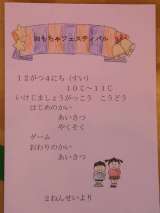 おもちゃフェスティバル
12がつ4にち(すい)
10じ～11じ
いけじましょうがっこう こうどう
はじめのかい
あいさつ
やくそく
ゲーム
おわりのかい
あいさつ
2ねんせいより